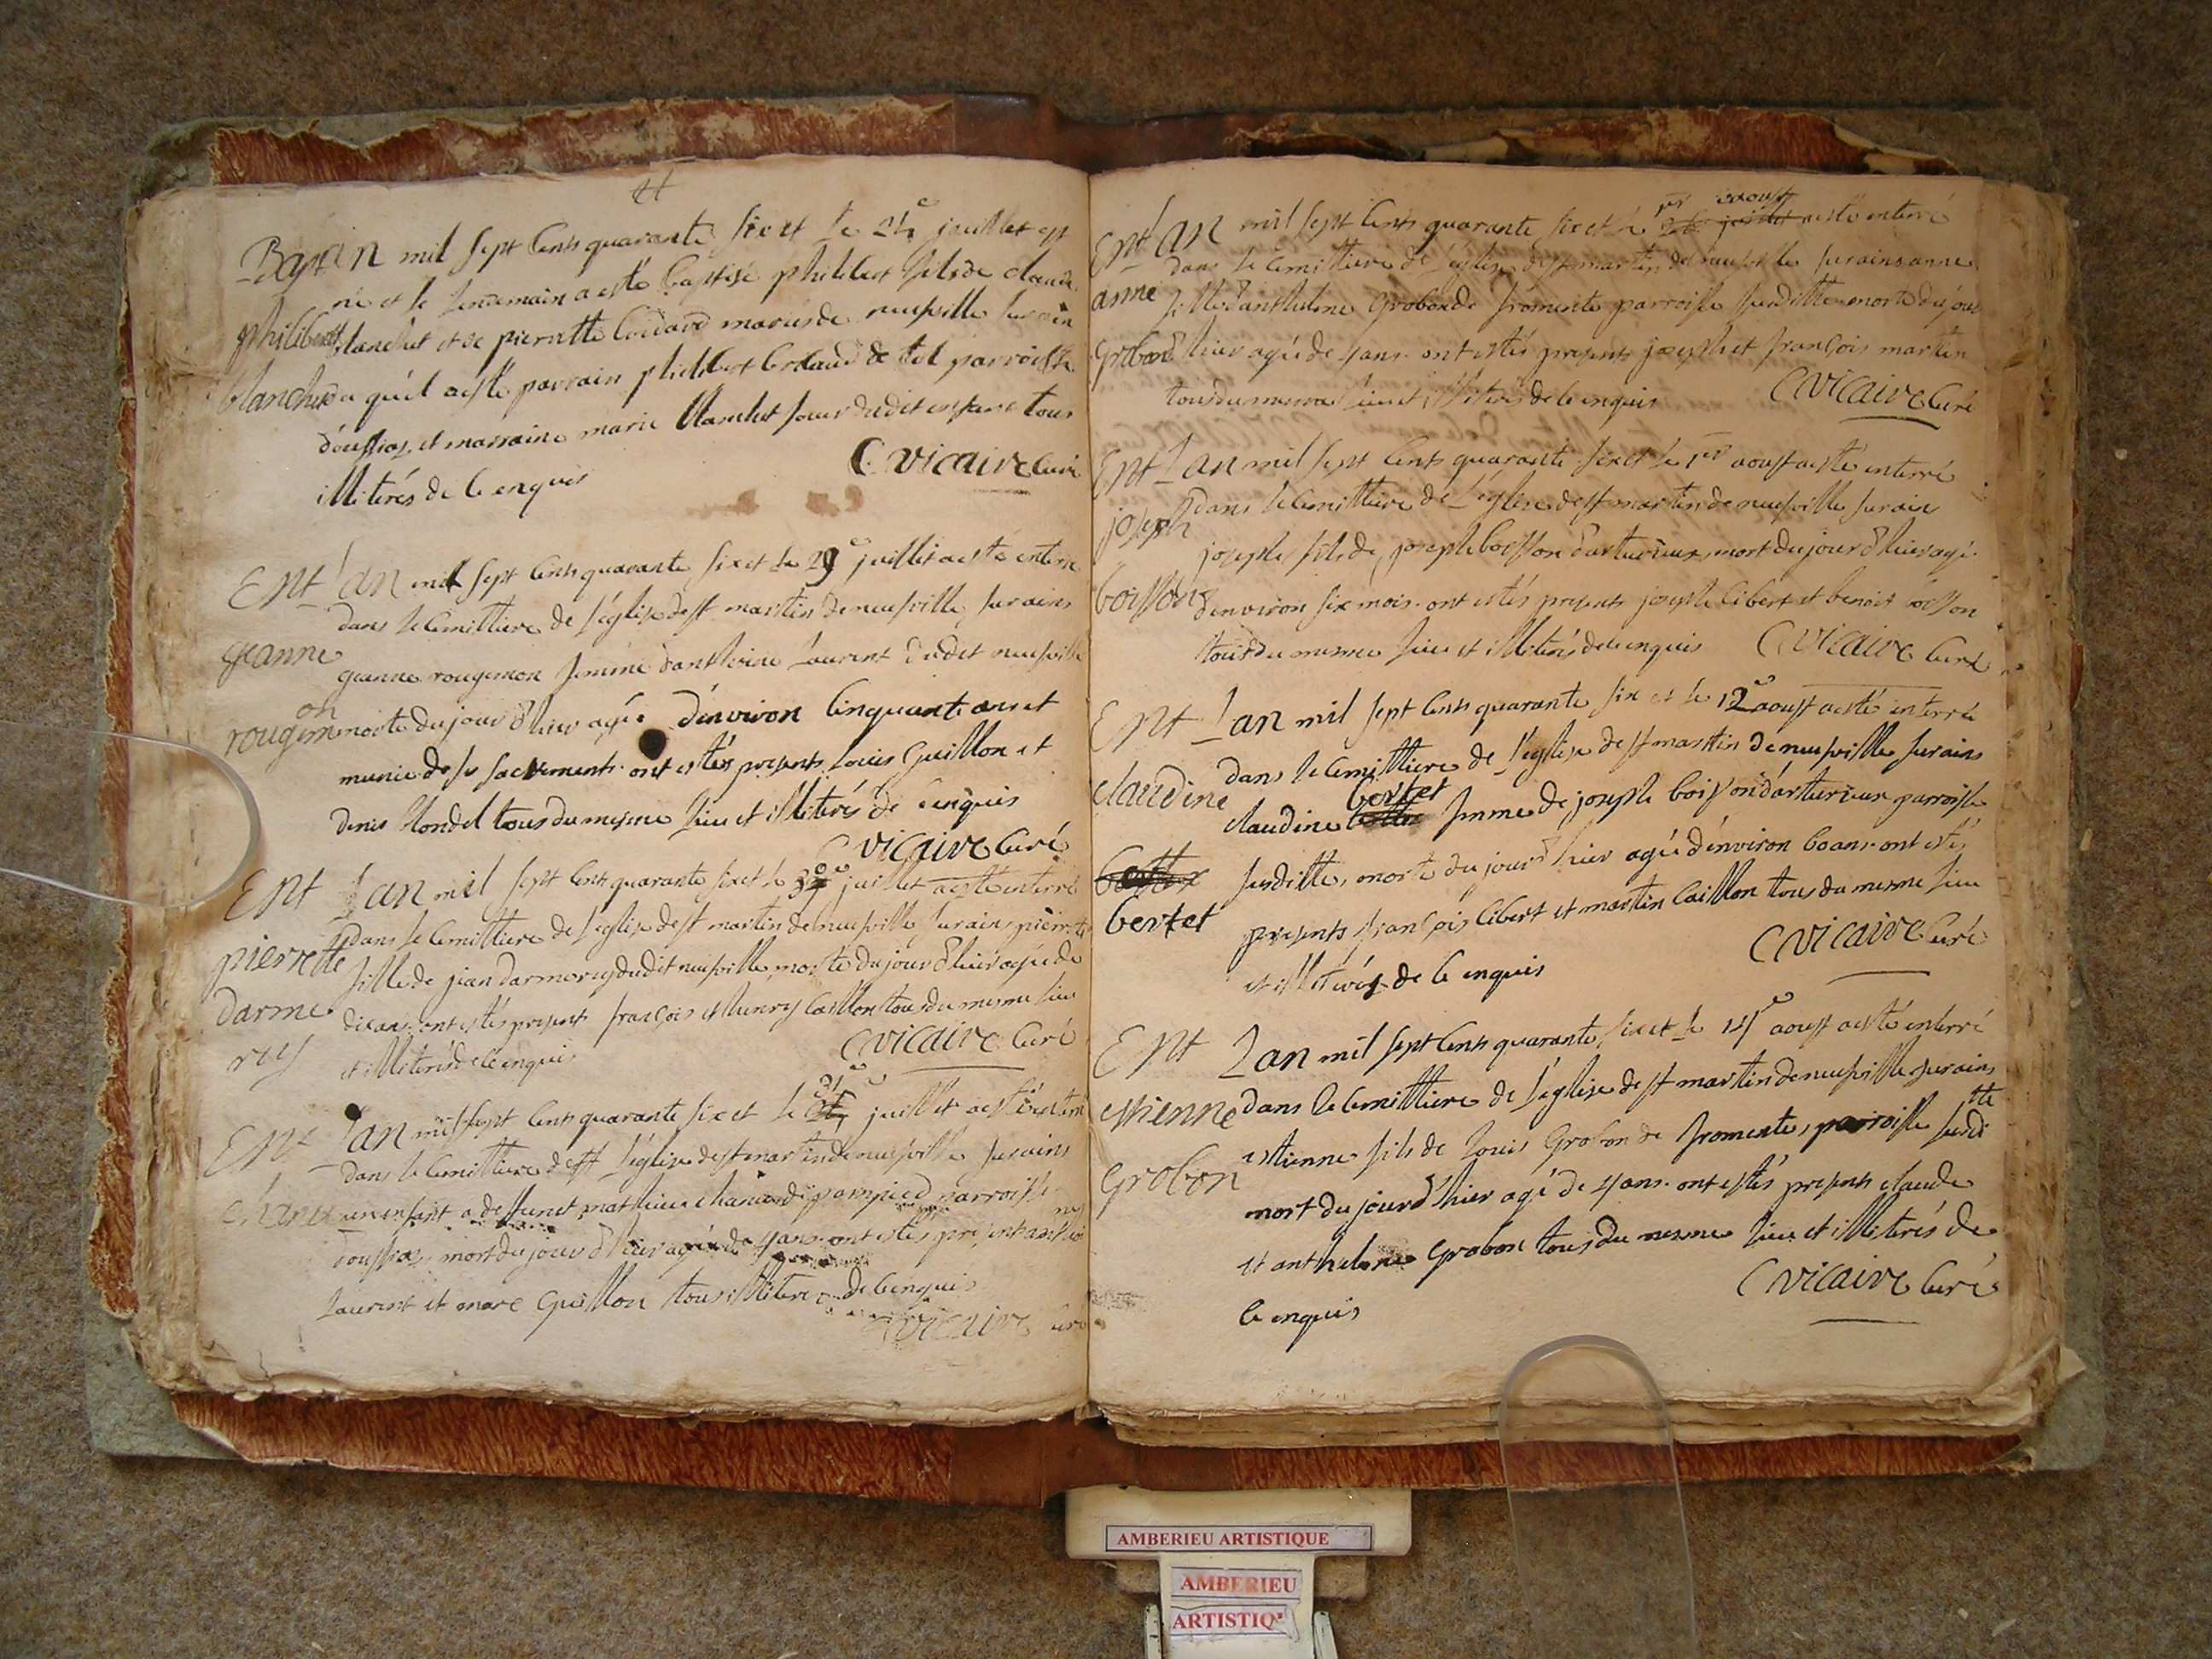 Bapt
philibert
blanchet
lan mil sept cents quarante six et le 24e juillet est
né et le lendemain a esté baptisé philibert fils de claude
blanchet et de pierrette mariés de neufville surain
a qui il a esté parrain philibert de tol parroisse
doussiaz et marraine marie blanchet soeur dudit enfant tous
illiterés de ce enquis
C vicaire curé
Ent
jeanne
rougemon
lan mil sept cents quarante six et le 29e juillet a esté enterré
dans le cemittiere de l'église de st martin de neufville surains
jeanne rougemon femme danthoine laurent dudit neufville
morte du jour d'hier agée d'environ cinquante ans et
munie de se sacrements ont estés presents louis guillon et
denis blondel tous du mesme lieu et illiterés de ce enquis
C vicaire curé
Ent
pierrette
darme
rey
Lan mil sept cents quarante six et le 30e juillet a esté enterré
dans le cemittiere de l'église de st martin de neufville surains pierrette
fille de jean darmerey dudit neufville, morte du jour d'hier agée de
dix ans ont estés presents françois et henry caillon tous du mesme lieu
et illiterés de ce enquis
C vicaire curé
Ent
Lan mil sept cents quarante six et le 31e juillet a esté enterré
dans le cemittiere de st l'église de st martin de neufville surains
un enfant a deffunct mathieu de pampied parroisse
doussiaz, mort du jour d'hier agé de 4 ans ont estés present
laurent et marc guillon tous illiterés de ce enquis
C vicaire curé
Ent
anne
grobon
Lan mil sept cents quarante six et le pr aoust a esté enterré
dans le cemittiere de l'église de st martin de neufville surains anne
fille d'anthelme Grobon de fromente parroisse susditte morte du jour
d'hier agée de 4 ans ont estés presents joseph et françois martin
tous du mesme lieu et illiterés de ce enquis
C vicaire curé
Ent
joseph
boisson
Lan mil sept cents quarante six et le 1er aoust a esté enterré
dans le cemittiere de l'église de st martin de neufville surain
joseph fils de joseph boisson d'arturieux, mort du jour d'hier agé
d'environ six mois ont estés presents joseph libert et benoit
tous du mesme lieu et illiterés de ce enquis
C vicaire curé
Ent
claudine
bertet
Lan mil sept cents quarante six et le 12e aoust a esté enterré
dans le cemittiere de l'église de st martin de neufville surains
claudine bertet femme de joseph boisson d'arturieux parroisse
susditte, morte du jour d'hier agée d'environ 60 ans ont estés
presents françois libert et martin caillon tous du mesme lieu
et illiterés de ce enquis
C vicaire curé
Ent
estienne
grobon
Lan mil sept cents quarante six et le 15e aoust a esté enterré
dans le cemittiere de l'église de st martin de neufville surains
estienne fils de louis Grobon de fromente, parroisse susditte
mort du jour d'hier agé de 4 ans ont estés presents claude
et anthelme Grobon tous du mesme lieu et illiterés de
ce enquis
C vicaire curé
AMBERIEU ARTISTIQUE
AMBERIEU
ARTISTIQ